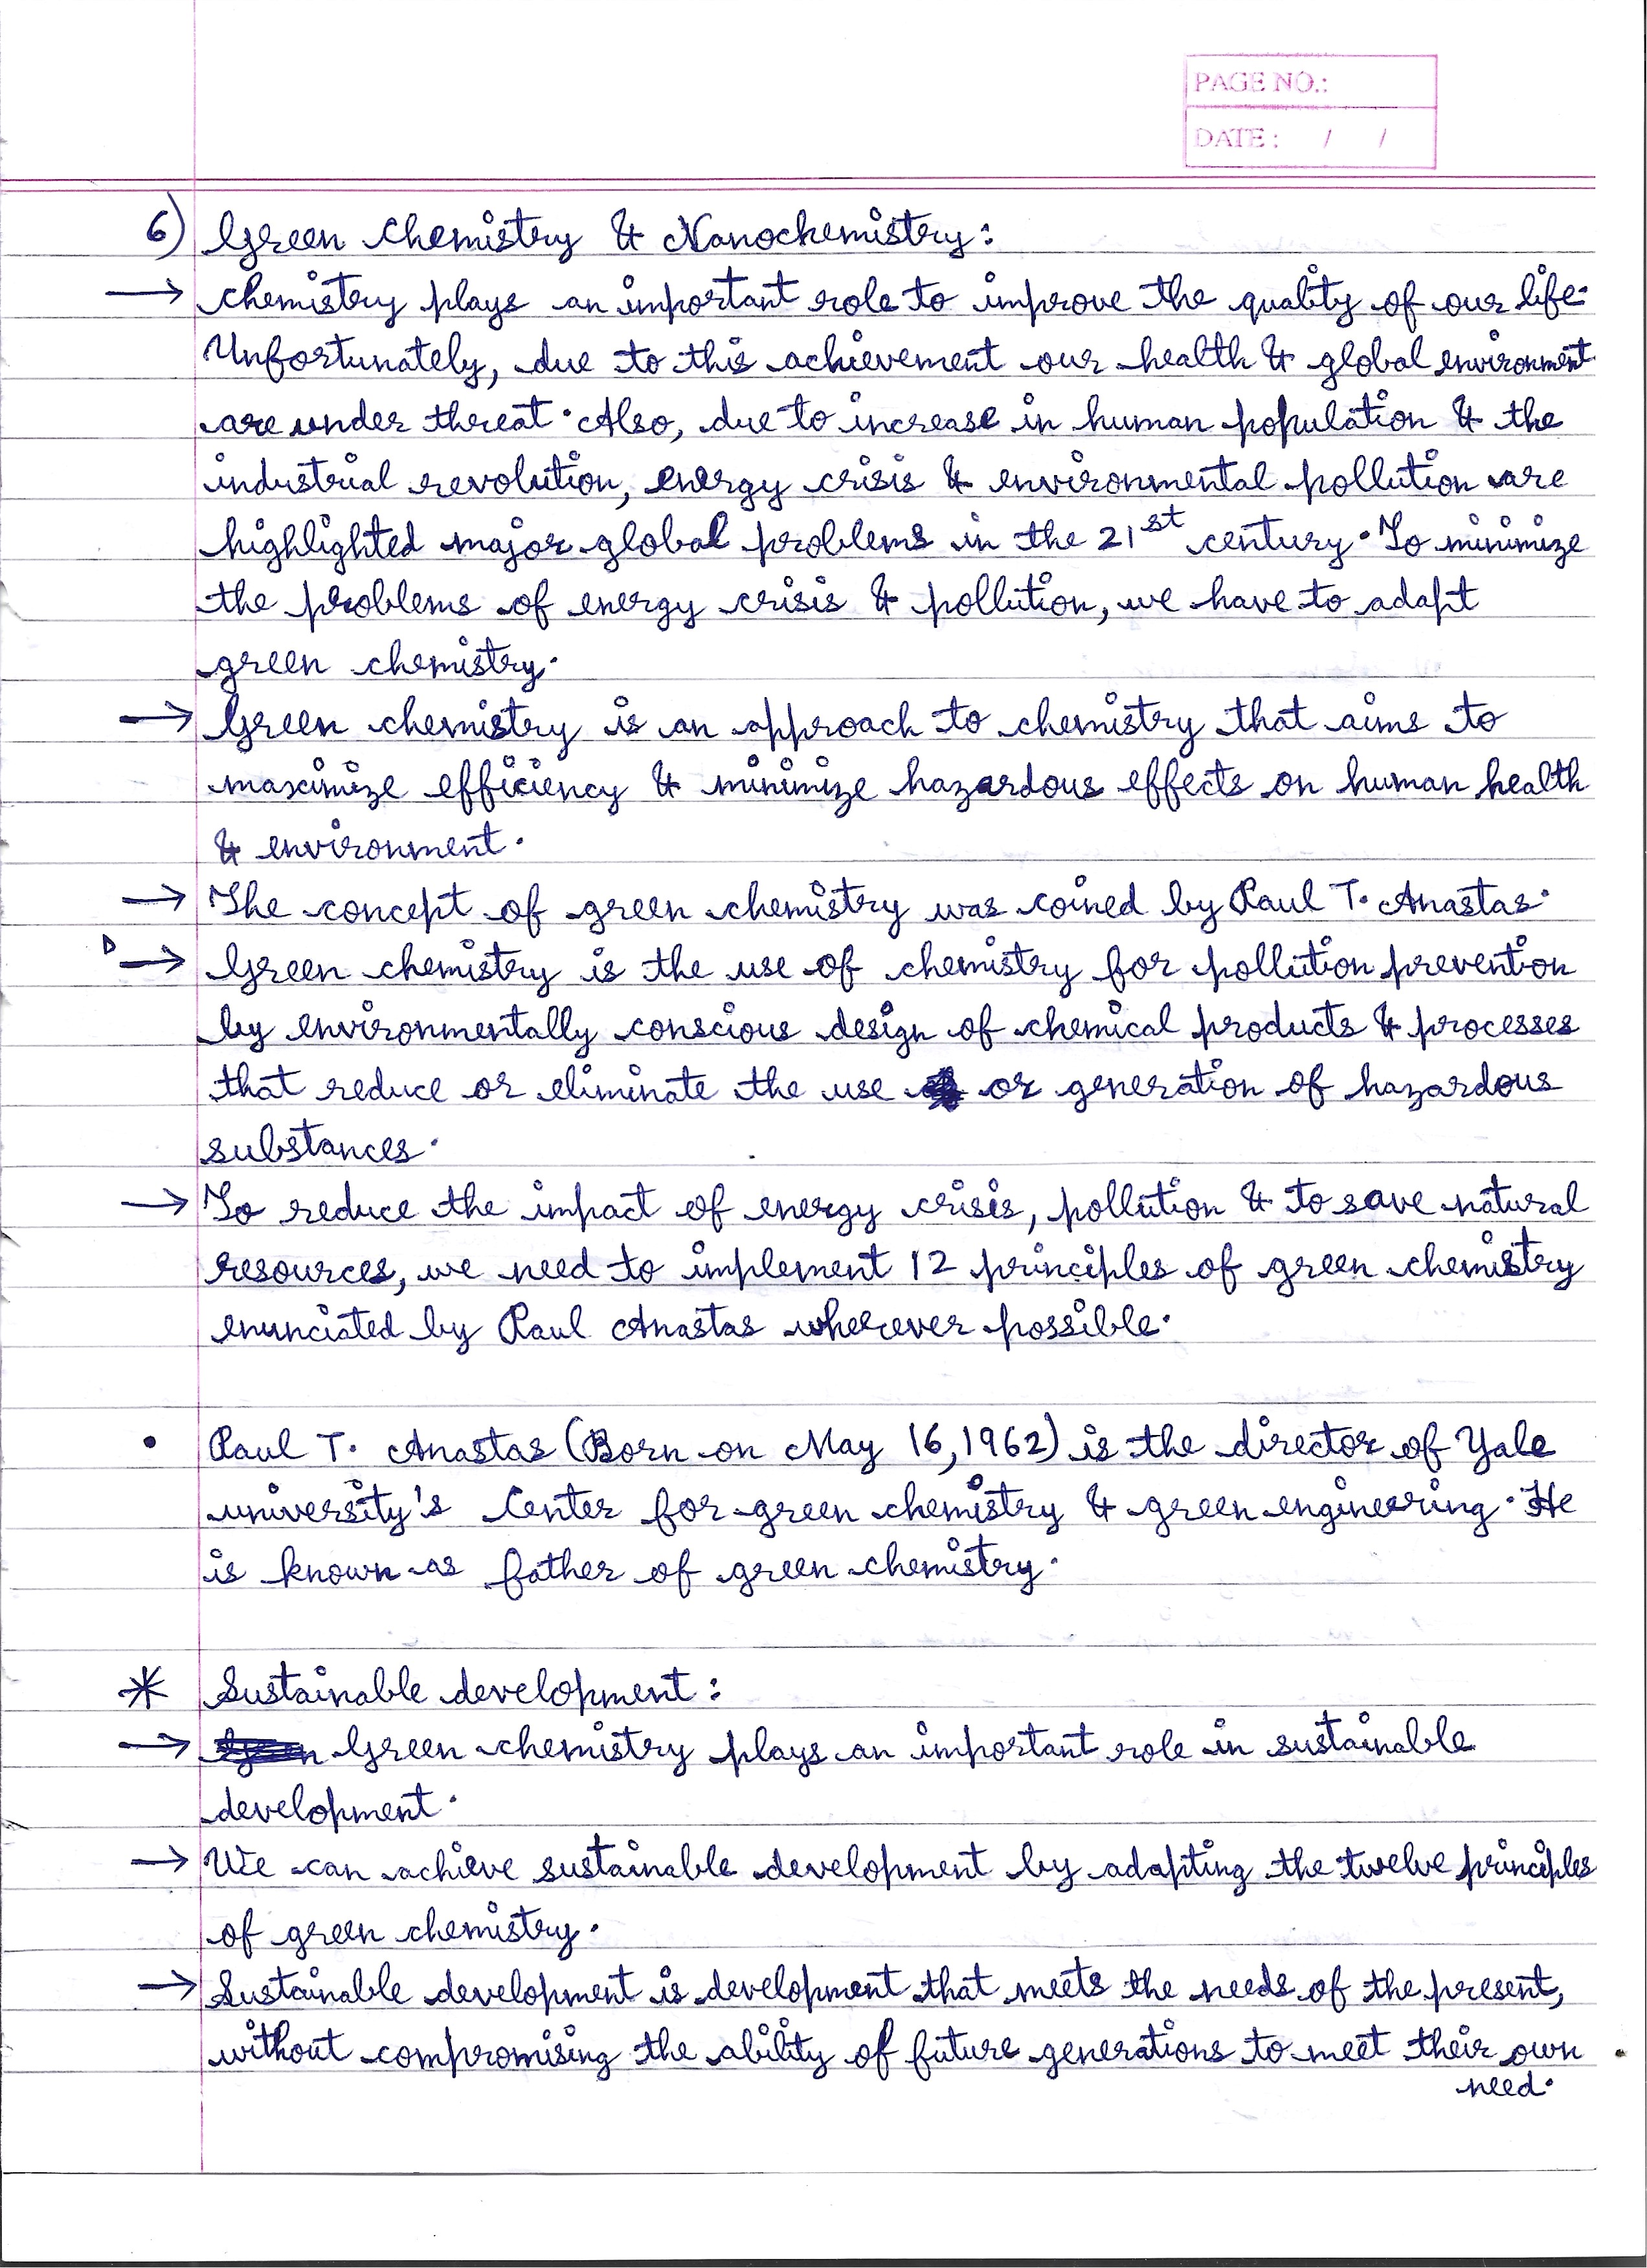 PAGE NO.:
DATE : / /
6) Green chemistry & Nanochemistry:
→ chemistry plays an important role to improve the quality of our life.
Unfortunately, due to this achievement our health & global environment
are under threat. Also, due to increase in human population & the
industrial revolution, energy crisis & environmental pollution are
highlighted major global problems in the 21st century. To minimize
the problems of energy crisis & pollution, we have to adapt
green chemistry.
→ Green chemistry is an approach to chemistry that aims to
maximize efficiency & minimize hazardous effects on human health
& environment.
→ The concept of green chemistry was coined by Paul T. Anastas.
→ Green chemistry is the use of chemistry for pollution prevention
by environmentally conscious design of chemical products & processes
that reduce or eliminate the use or generation of hazardous
substances.
→ To reduce the impact of energy crisis, pollution & to save natural
resources, we need to implement 12 principles of green chemistry
enunciated by Paul Anastas wherever possible.
• Paul T. Anastas (Born on May 16, 1962) is the director of Yale
university's Center for green chemistry & green engineering. He
is known as father of green chemistry.
* Sustainable development:
→ Green chemistry plays an important role in sustainable
development.
→ We can achieve sustainable development by adapting the twelve principles
of green chemistry.
→ Sustainable development is development that meets the needs of the present,
without compromising the ability of future generations to meet their own
need.